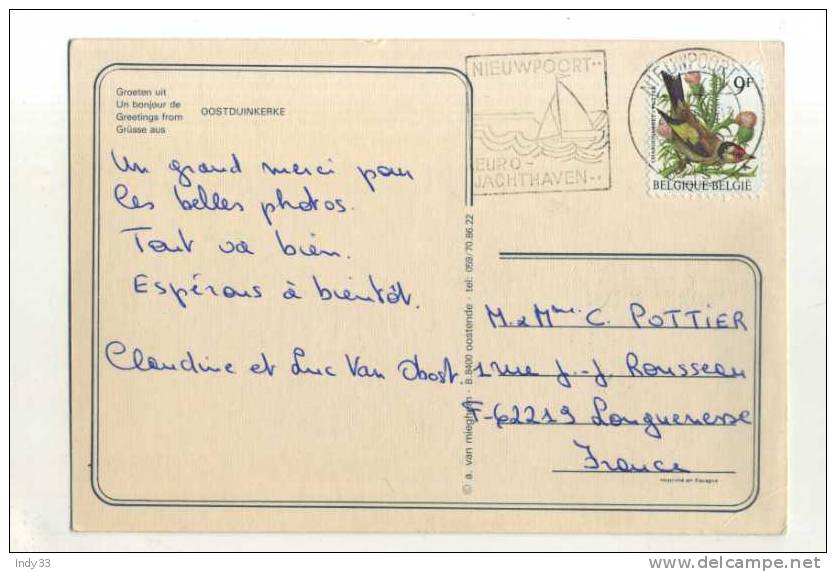 Groeten uit
Un bonjour de
Greetings from
Grüsse aus
OOSTDUINKERKE
Un grand merci pour
les belles photos.
Tout va bien.
Espérons à bientôt.
Claudine et Luc Van Oost.
© a. van mieghem - B.8400 oostende - tel: 059/70.86.22
NIEUWPOORT
EURO-
JACHTHAVEN
NIEUWPOORT
9F
BELGIQUE-BELGIË
M. & Mme. C. POTTIER
1 rue J.-J. Rousseau
F-62219 Longuenesse
France
Indy33
delcampe.net